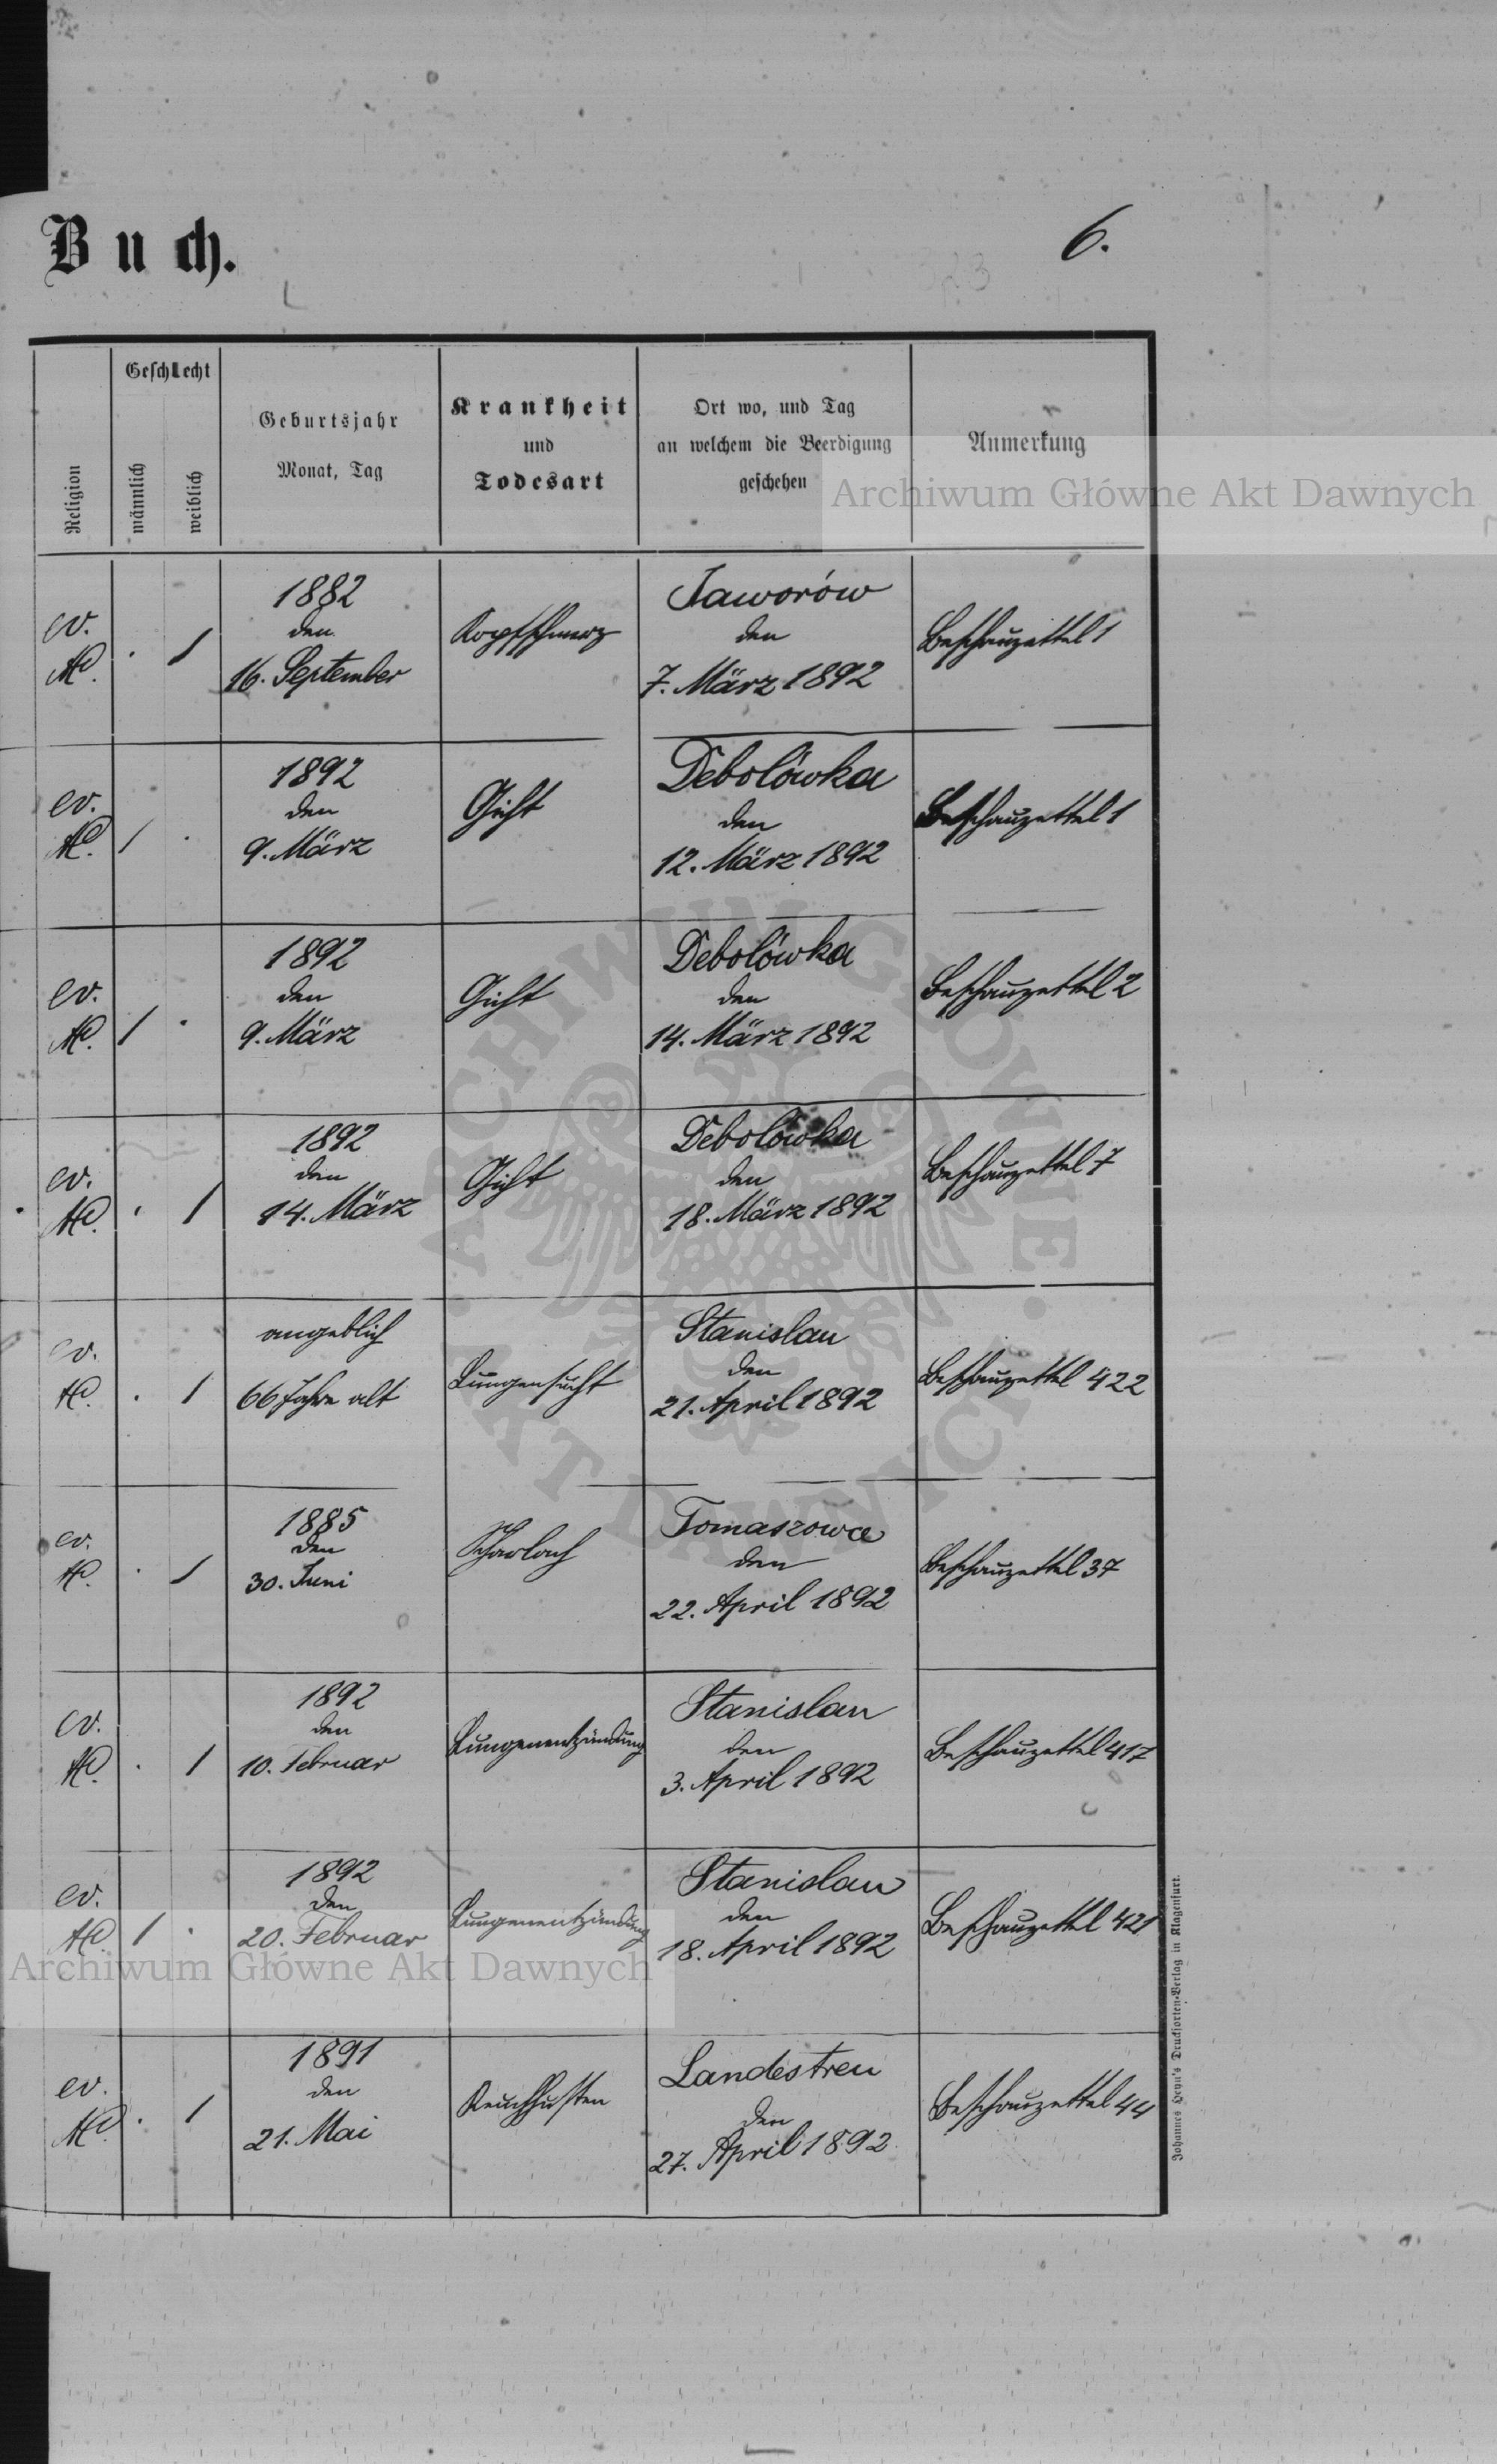 Buch.
6.
Religion
Geschlecht
männlich
weiblich
Geburtsjahr
Monat, Tag
Krankheit
und
Todesart
Ort wo, und Tag
an welchem die Beerdigung
geschehen
Anmerkung
Archiwum Główne Akt Dawnych
ev.
AC.
. 1
1882
den
16. September
Kopfschmerz
Jaworów
den
7. März 1892
Beschauzettel 1
ev.
AC.
1 .
1892
den
9. März
Gicht
Debolówka
den
12. März 1892
Beschauzettel 1
ev.
AC.
1 .
1892
den
9. März
Gicht
Debolówka
den
14. März 1892
Beschauzettel 2
ev.
AC.
. 1
1892
den
14. März
Gicht
Debolówka
den
18. März 1892
Beschauzettel 7
ev.
AC.
. 1
angeblich
66 Jahre alt
Lungensucht
Stanislau
den
21. April 1892
Beschauzettel 422
ev.
AC.
. 1
1885
den
30. Juni
Scharlach
Tomaszowce
den
22. April 1892
Beschauzettel 37
ev.
AC.
. 1
1892
den
10. Februar
Lungenentzündung
Stanislau
den
3. April 1892
Beschauzettel 417
ev.
AC.
1 .
1892
den
20. Februar
Lungenentzündung
Stanislau
den
18. April 1892
Beschauzettel 421
Archiwum Główne Akt Dawnych
ev.
AC.
. 1
1891
den
21. Mai
Keuchhusten
Landestreu
den
27. April 1892
Beschauzettel 44
Johannes Heyn's Drucksorten-Verlag in Klagenfurt.
ARCHIWUM GŁÓWNE AKT DAWNYCH